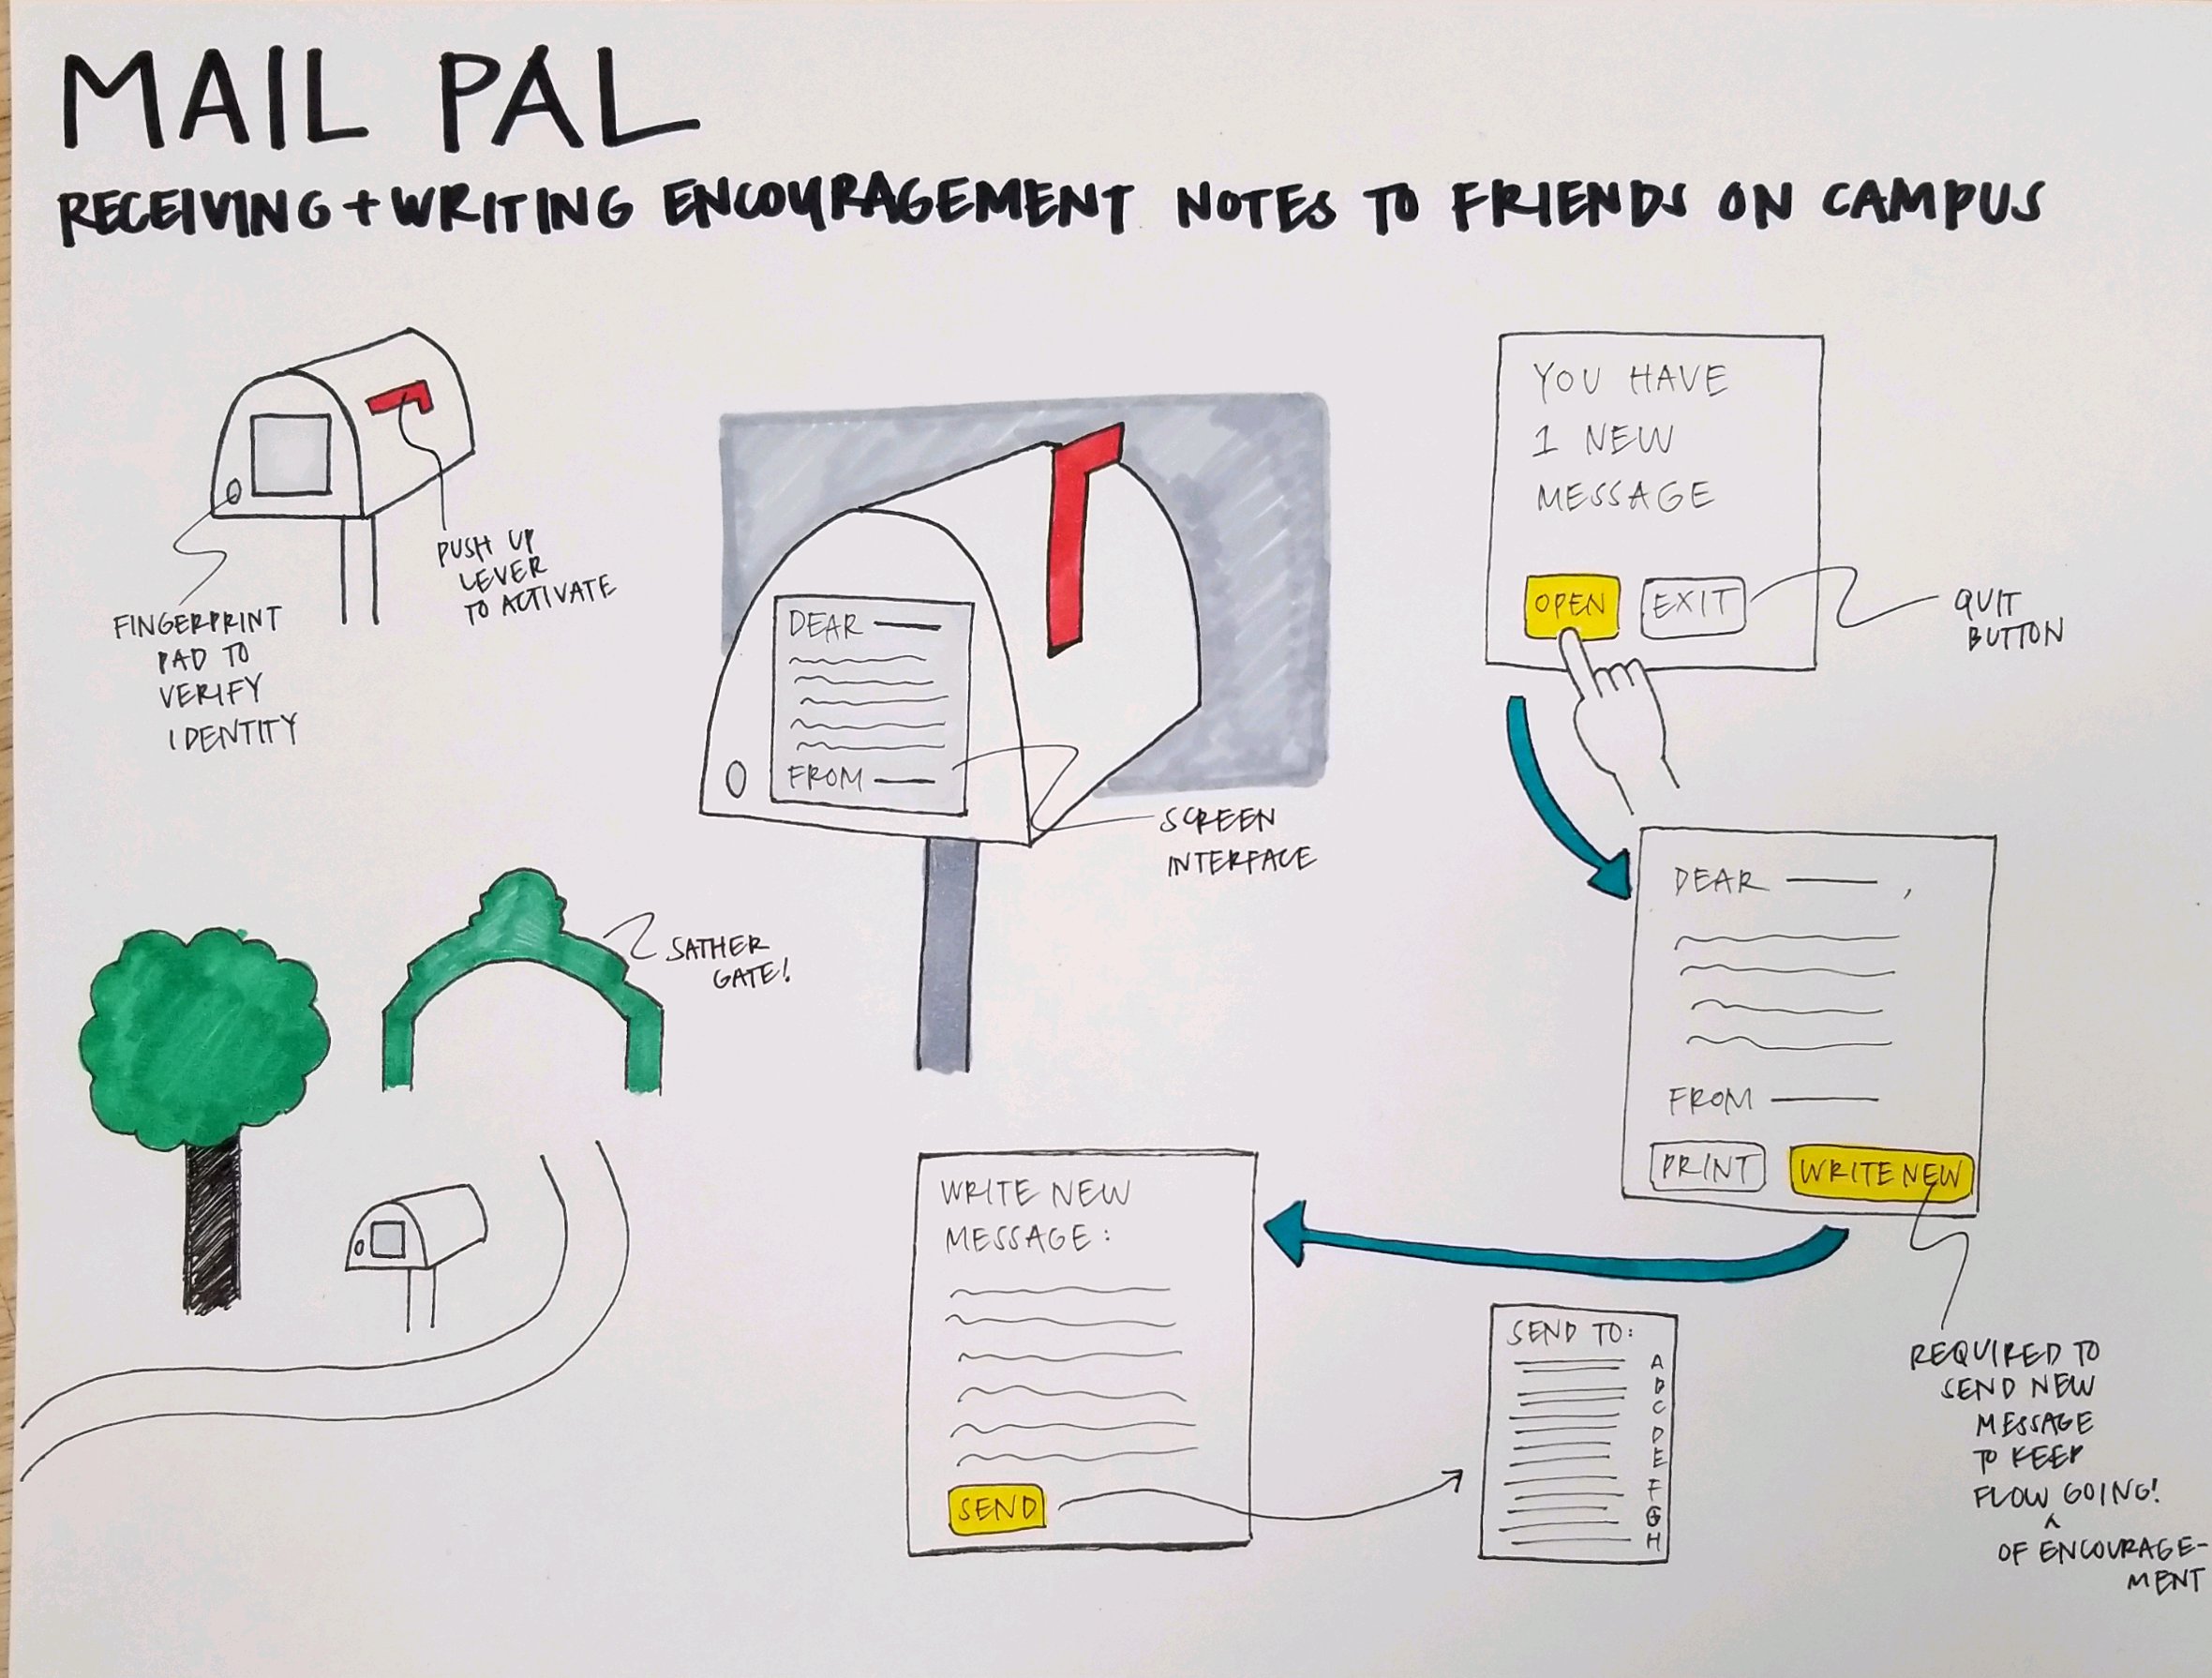 MAIL PAL
RECEIVING + WRITING ENCOURAGEMENT NOTES TO FRIENDS ON CAMPUS
FINGERPRINT
PAD TO
VERIFY
IDENTITY
PUSH UP
LEVER
TO ACTIVATE
DEAR
FROM
SCREEN
INTERFACE
SATHER
GATE!
YOU HAVE
1 NEW
MESSAGE
OPEN
EXIT
QUIT
BUTTON
DEAR ,
FROM
PRINT
WRITE NEW
REQUIRED TO
SEND NEW
MESSAGE
TO KEEP
FLOW GOING!
^
OF ENCOURAGE-
MENT
WRITE NEW
MESSAGE:
SEND
SEND TO:
A
B
C
D
E
F
G
H